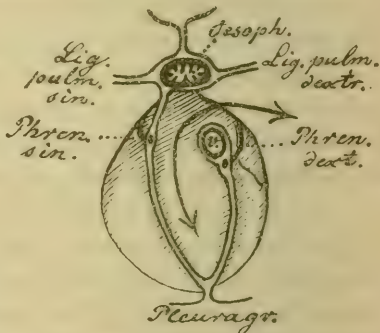 Œsoph.
Lig.
pulm.
sin.
Lig. pulm.
dextr.
Phren.
sin.
Phren.
dext.
Pleuragr.